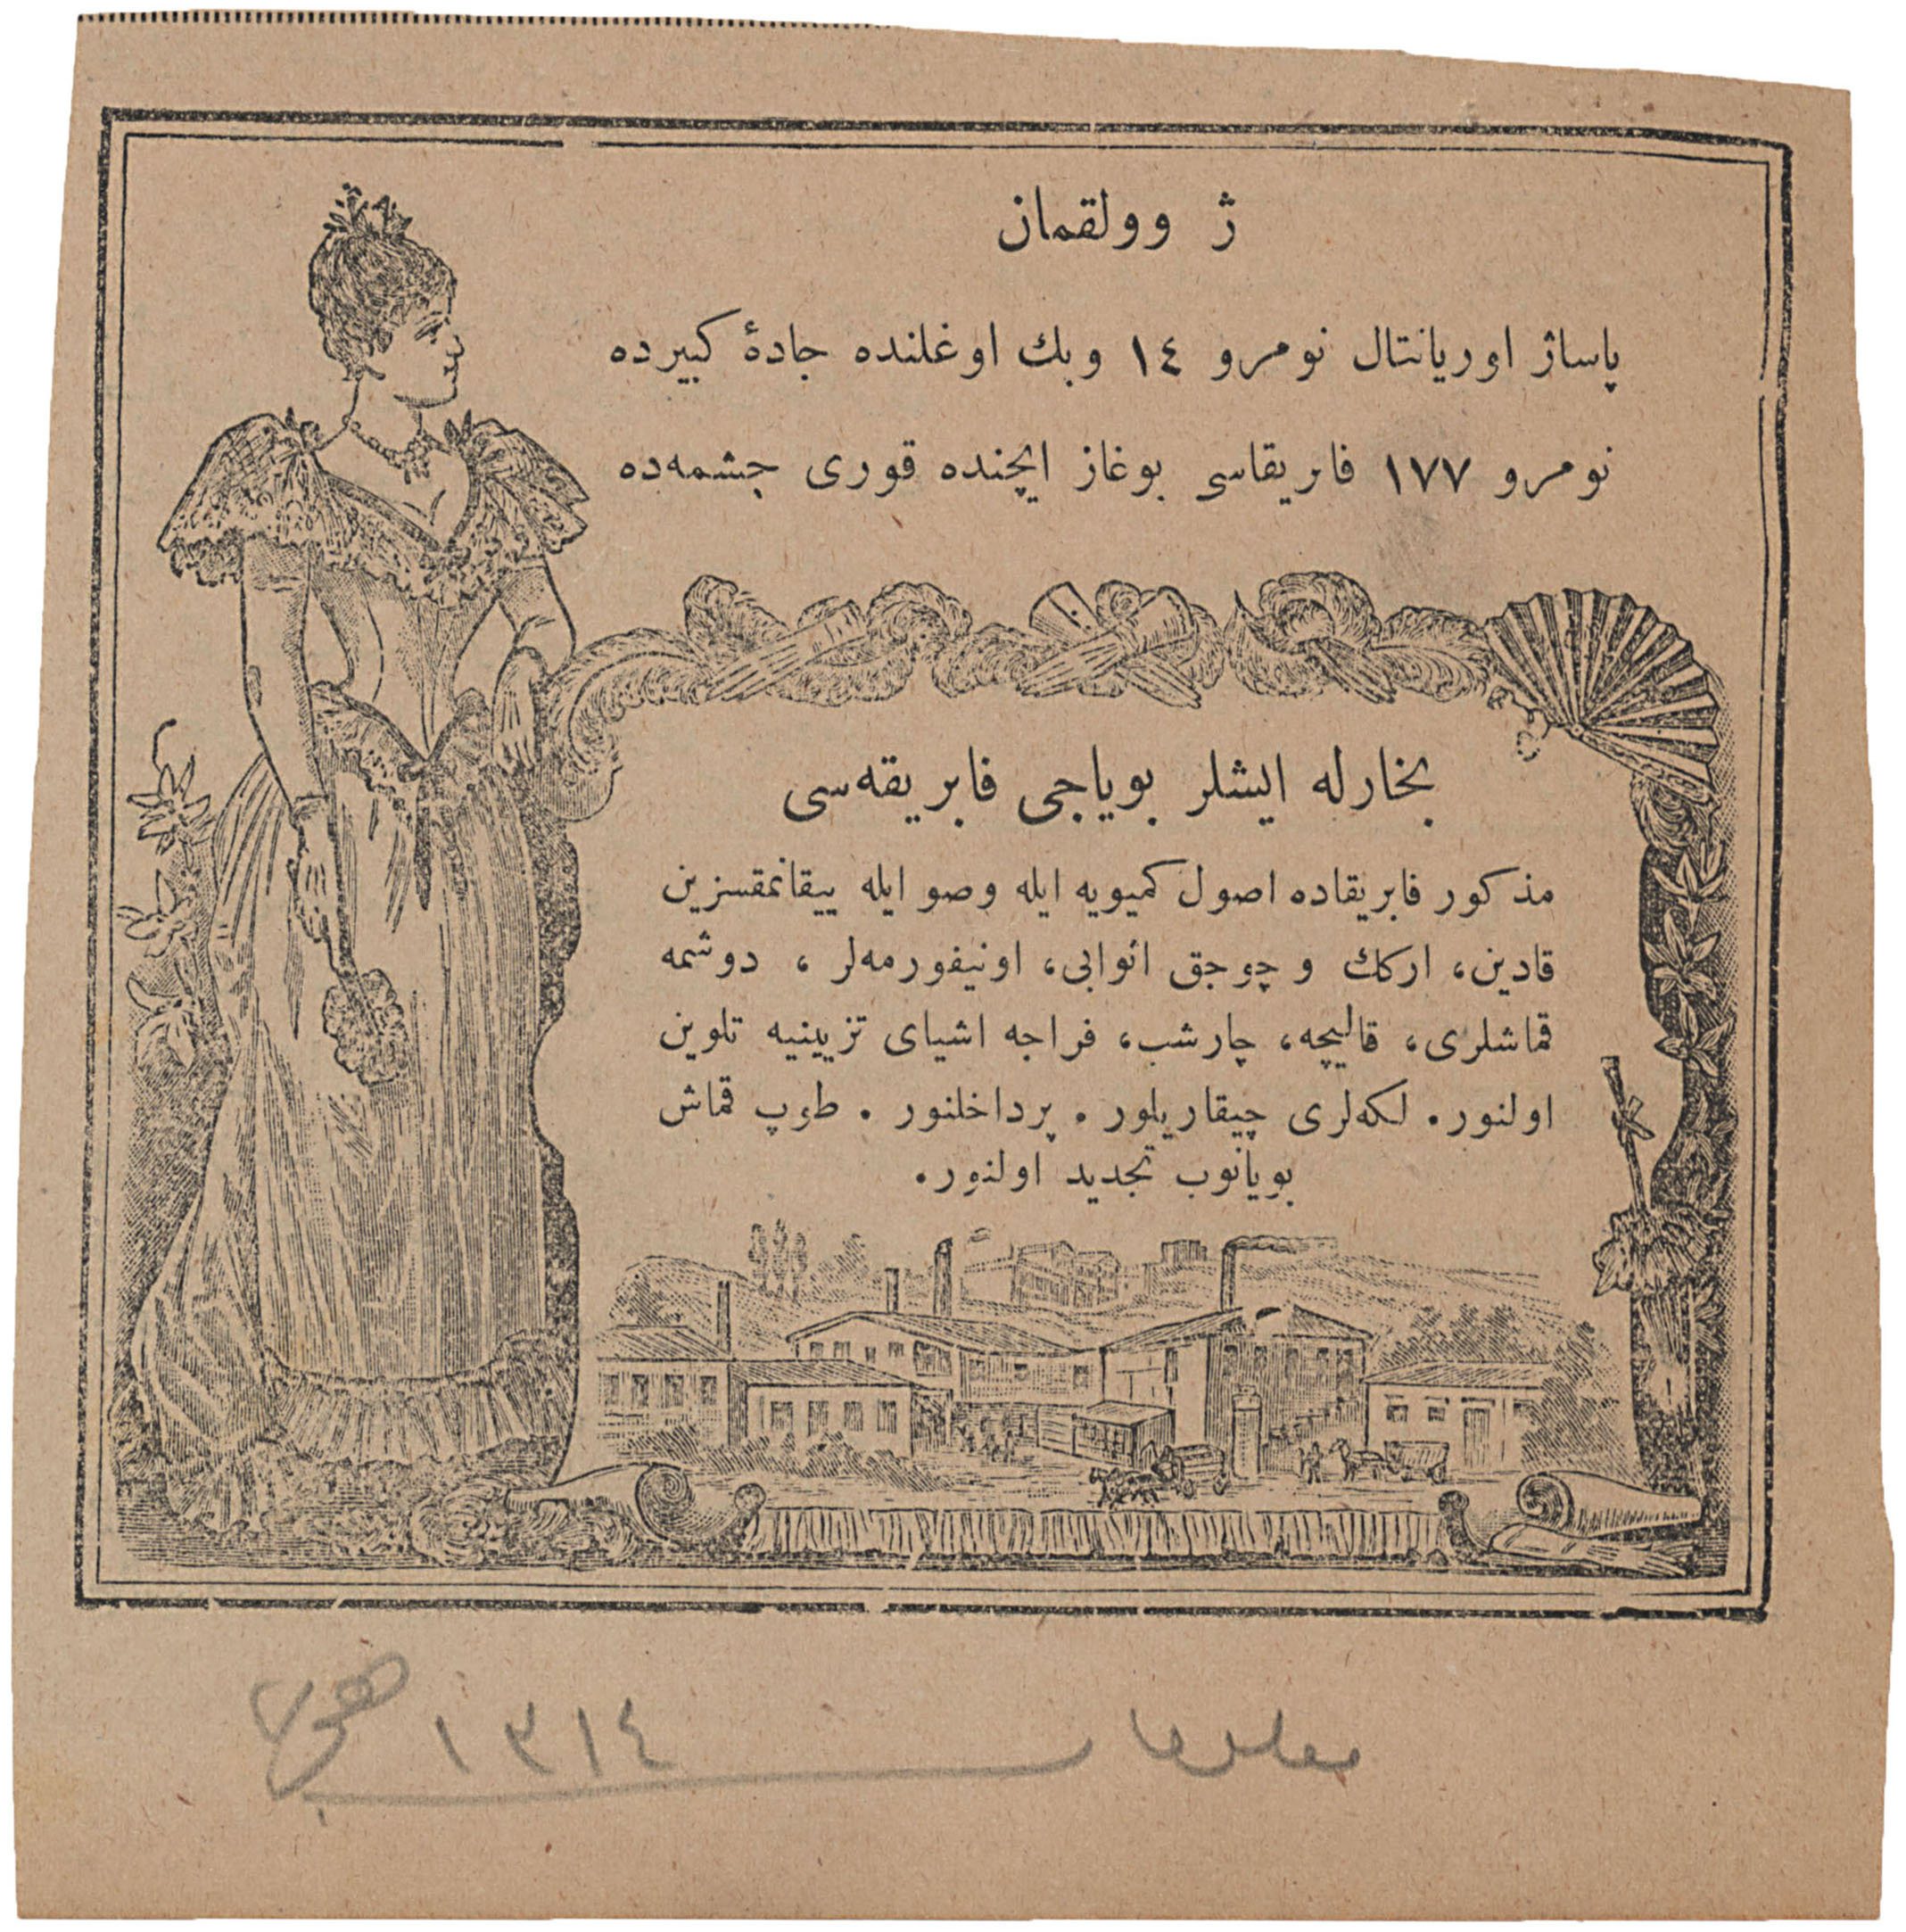 ژ وولقمان
پاساژ اوريانتال نومرو ١٤ وبك اوغلنده جادۀ كبيرده
نومرو ١٧٧ فابريقاسى بوغاز ايچنده قورى چشمه‌ده
بخارله ايشلر بوياجى فابريقه‌سى
مذكور فابريقاده اصول كميويه ايله وصو ايله ييقانمقسزين
قادين، اركك و چوجق اثوابى، اونيفورمه‌لر، دوشمه
قماشلرى، قاليچه، چارشب، فراجه اشياى تزيينيه تلوين
اولنور. لكه‌لرى چيقاريلور. پرداخلنور. طوپ قماش
بويانوب تجديد اولنور.
معلومات ١٣١٤